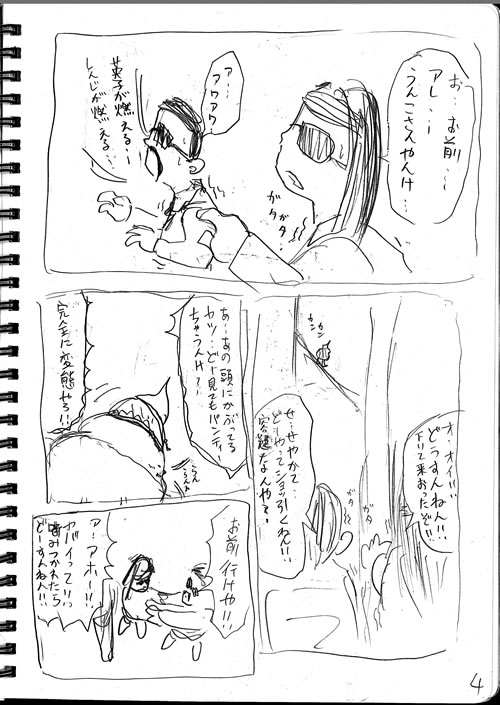 お…お前…
アレ…
うんこさんやんけ…
ガタガタ
ア…
アワアワ
英子が燃える…
しんじが燃える…
カン
カン
オ…オイ!!
どうすんねん!!
下りて来おったぞ!!
ガタ
ガタ
せ…せやかて…
どーやってショッ引くねん!!
容疑なんやて?
あ…あの頭にかぶってる
ヤツ…どー見てもパンティー
ちゃうんけ?
らん
らん
完全に変態やろ!!
お前行けや!!
ア!アホー!!
ヤバイって!!
噛みつかれたら
どーすんねん!!
4